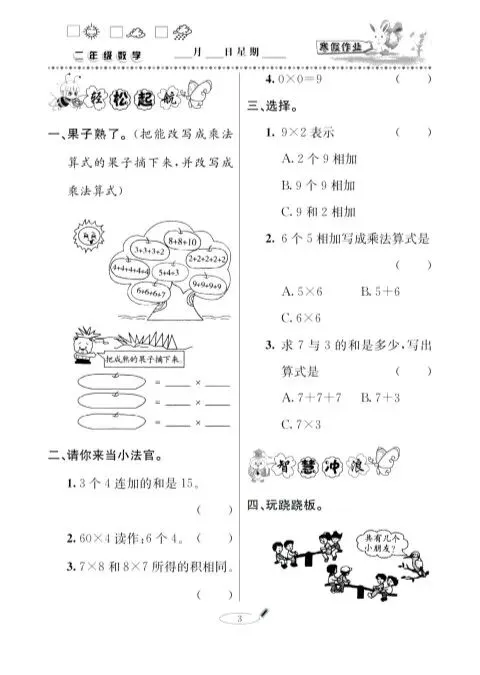 二年级数学
月 日星期
寒假作业
轻松起航
一、果子熟了。(把能改写成乘法
算式的果子摘下来,并改写成
乘法算式)
8+8+10
3+3+3+2
2+2+2+2+2
4+4+4+4+4
5+4+3
6+6+6+7
9+9+9+9
把成熟的果子摘下来
= ____ × ____
= ____ × ____
= ____ × ____
二、请你来当小法官。
1. 3个4连加的和是15。
( )
2. 60×4读作:6个4。( )
3. 7×8和8×7所得的积相同。
( )
4. 0×0=9 ( )
三、选择。
1. 9×2表示 ( )
A. 2个9相加
B. 9个9相加
C. 9和2相加
2. 6个5相加写成乘法算式是
( )
A. 5×6 B. 5+6
C. 6×6
3. 求7与3的和是多少,写出
算式是 ( )
A. 7+7+7 B. 7+3
C. 7×3
智慧冲浪
四、玩跷跷板。
共有几个
小朋友?
3